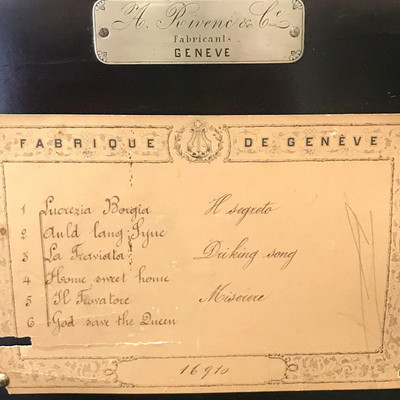 A. Rivenc & Cie
Fabricants
GENEVE
FABRIQUE DE GENÈVE
1 Lucrezia Borgia Il segreto
2 Auld lang Syne
3 La Traviata Driking song
4 Home sweet home
5 Il Trovatore Miserere
6 God save the Queen
16910